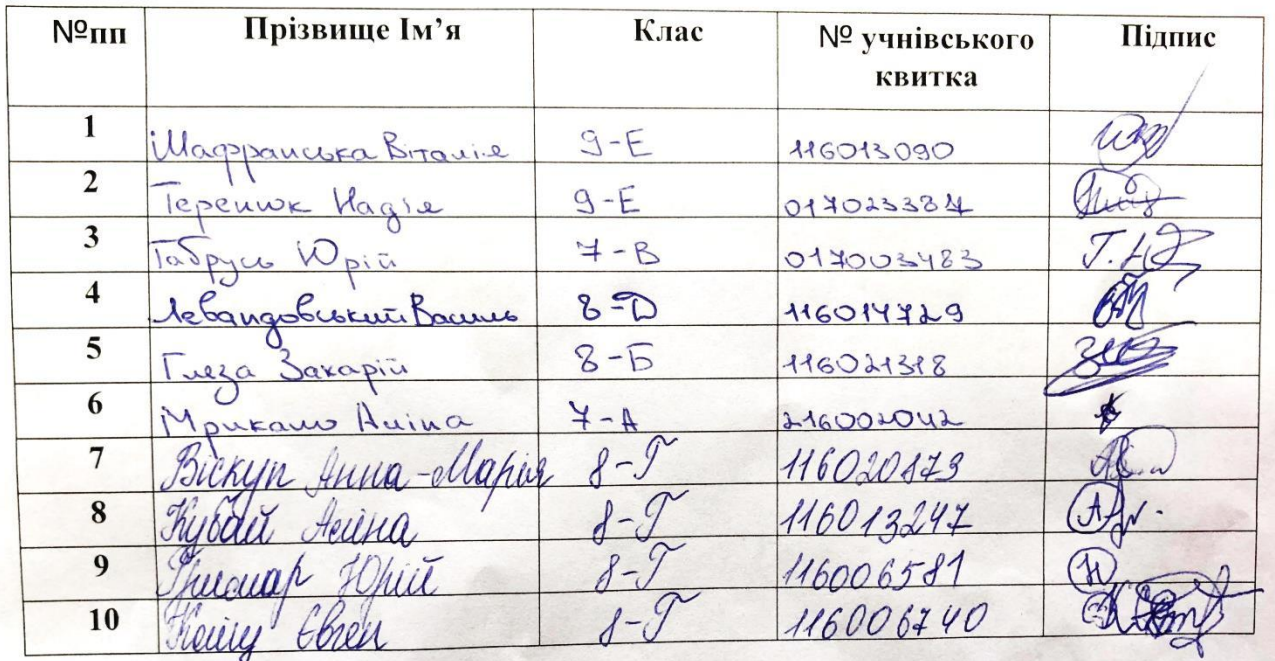 №пп Прізвище Ім’я Клас № учнівського квитка Підпис
1 Шафранська Віталія 9-Е 116013090
2 Теренюк Надія 9-Е 017023384
3 Габрусь Юрій 7-В 017003483 Г.Ю
4 Левандовський Василь 8-D 116014729
5 Глеза Захарій 8-Б 116021318
6 Аліна 7-А 216002042
7 Біскуп Анна-Марія 8-Г 116020873
8 Кубай Аліна 8-Г 116013247
9 Юрій 8-Г 116006581 Ю
10 Євген 8-Г 116006740